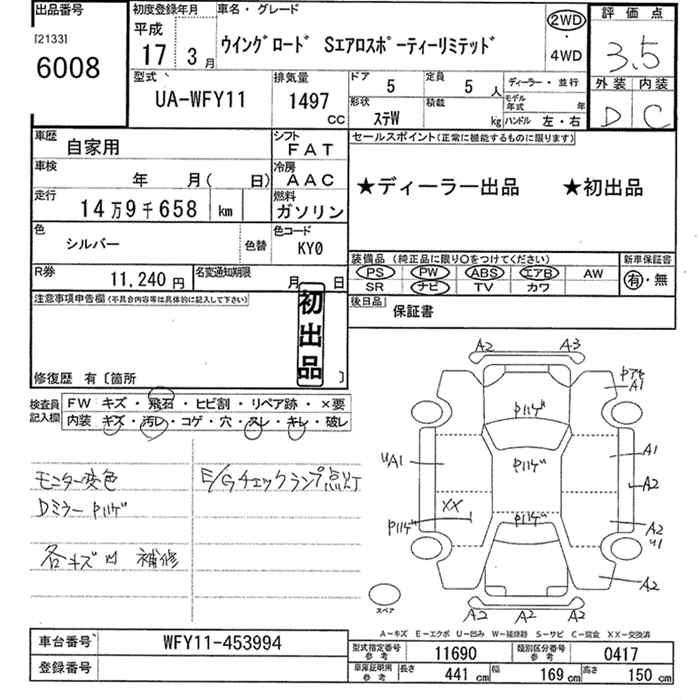 出品番号
[2133]
6008
初度登録年月
平成
17 3月
車名・グレード
ウイングロード Sエアロスポーティーリミテッド
2WD
・
4WD
評価点
3.5
外装 内装
D C
型式
UA-WFY11
排気量
1497
CC
ドア
5
定員
5 人
ディーラー・並行
形状
ステW
積載
kg
モデル年式 年
ハンドル 左・右
車歴
自家用
シフト
FAT
車検
年 月( 日)
冷房
AAC
走行
14万9千658 km
燃料
ガソリン
色
シルバー
色替
色コード
KY0
R券
11,240円
名変通知期限
月 日
セールスポイント(正常に機能するものに限ります)
★ディーラー出品 ★初出品
装備品 (純正品に限り○をつけてください)
PS PW ABS エアB AW
SR ナビ TV カワ
新車保証書
有・無
後日品
保証書
注意事項申告欄(不具合内容等は具体的に記入して下さい)
初出品
修復歴 有〔箇所 〕
検査員記入欄
FW キズ・飛石・ヒビ割・リペア跡・×要
内装 キズ・汚レ・コゲ・穴・スレ・キレ・破レ
モニター変色
Dミラー Pハゲ
各キズ凹 補修
E/Gチェックランプ点灯
A2 A3
A1
Pハゲ
UA1
Pハゲ
A1
A2
XX
Pハゲ
Pハゲ
A2
U1
A2
A2 A2 A2
スペア
A-キズ E-エクボ U-凹み W-補修跡 S-サビ C-腐食 XX-交換済
車台番号
WFY11-453994
登録番号
型式指定番号 参考
11690
類別区分番号 参考
0417
車庫証明用 参考
長さ 441 cm 幅 169 cm 高さ 150 cm